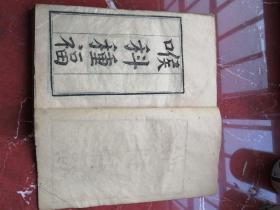 喉科種福